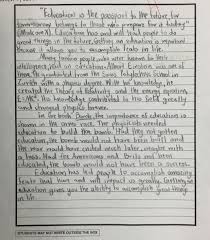 "Education is the passport to the future for
tomorrow belongs to those who prepare for it today"
(Malcolm X). Education has and will lead people to do
great things in the future. Getting an education is important
because it allows you to accomplish feats in life.
Many famous people who were known for their
intelligence, paid on attention. Albert Einstein was one of
them. He graduated from the Swiss Polytechnic School in
Zurich with a physics degree. With his knowledge, he
created the theory of relativity and the energy equation,
E=MC². His knowledge contributed to his field greatly
and changed physics forever.
In the book, Bomb, the importance of education is
shown in the arms race. The physicists needed
education to build the bomb. Had they not gotten
education, the bomb would not have been built and
the war would have ended much later, maybe with
a loss. Had the Americans and Brits not been
educated, the bomb would not have been a success.
Education has led people to accomplish amazing
feats that have and will impact us greatly. Getting an
education gives you the ability to accomplish great things
in life.
STUDENTS MAY NOT WRITE OUTSIDE THE BOX